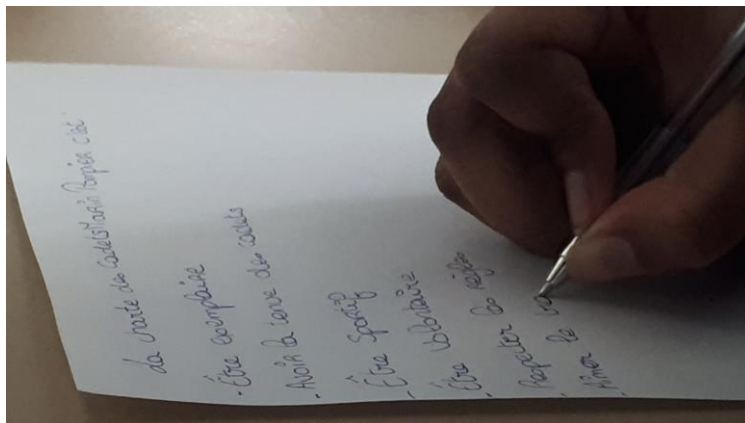 La charte des Cadets Marin Pompier c'est:
- Être exemplaire
- Avoir la tenue des cadets
- Être Sportif
- Être Volontaire
- Être
- Respecter les règles
- Aimer le